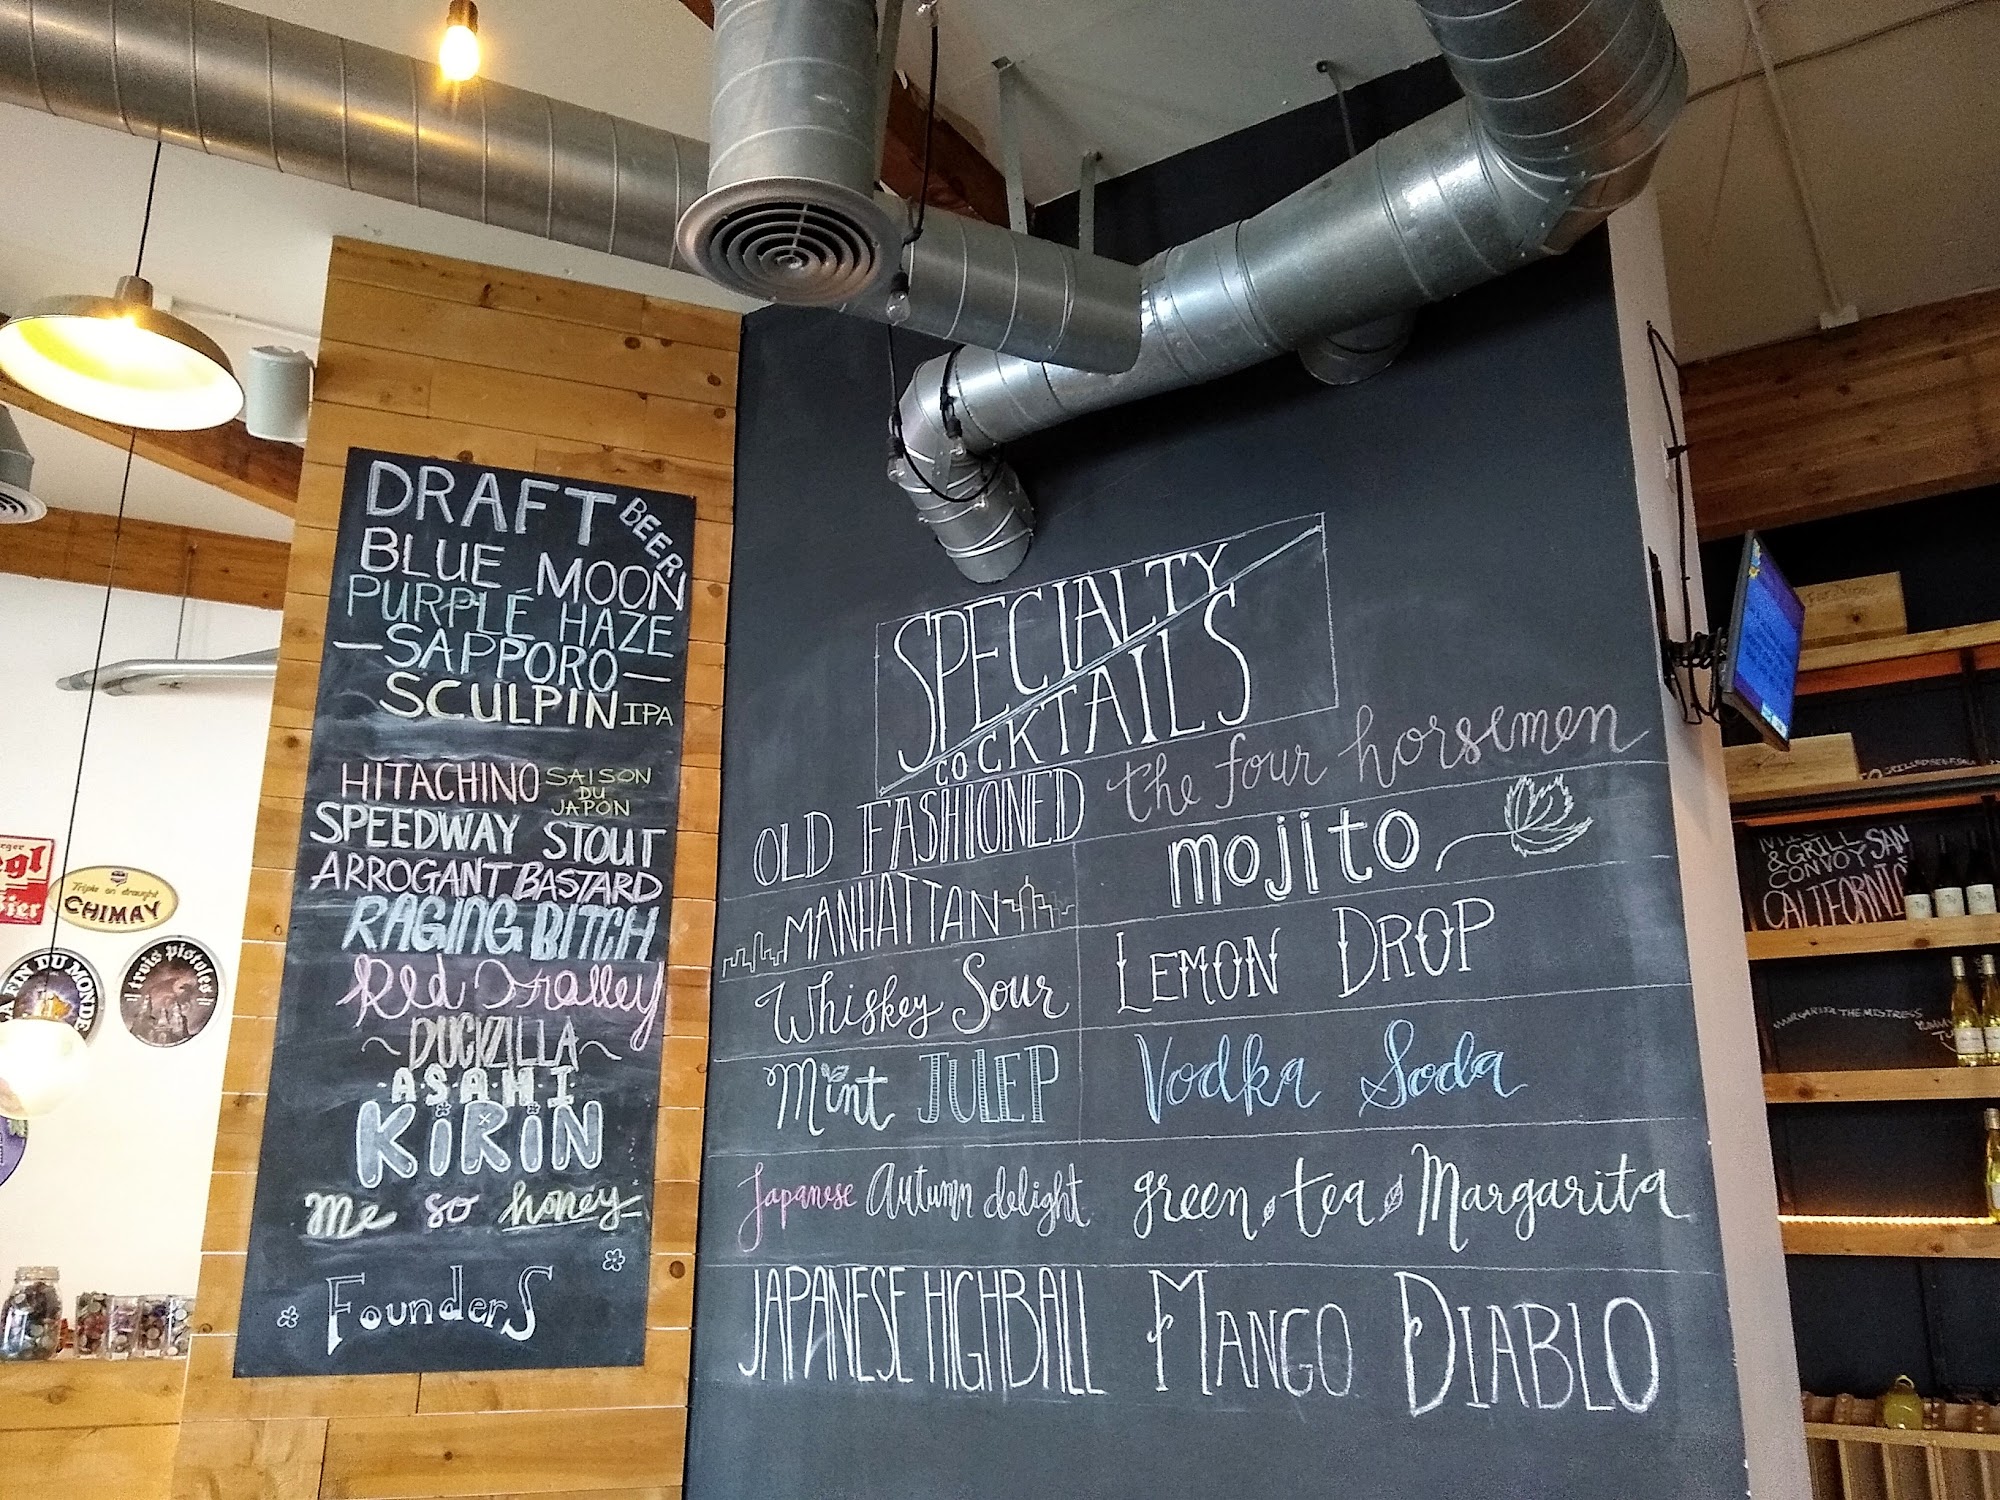 DRAFT BEER
BLUE MOON
PURPLE HAZE
—SAPPORO—
SCULPIN IPA
HITACHINO SAISON DU JAPON
SPEEDWAY STOUT
ARROGANT BASTARD
RAGING BITCH
Red Trolley
~DUCKZILLA~
ASAHI
KiRiN
me so honey
FounderS
SPECIALTY
COCKTAILS
OLD FASHIONED
the four horsemen
MANHATTAN
mojito
Whiskey Sour
LEMON DROP
Mint JULEP
Vodka Soda
Japanese Autumn delight
green tea Margarita
JAPANESE HIGHBALL
MANGO DIABLO
egl
Bier
Triple on draught
CHIMAY
LA FIN DU MONDE
trois pistoles
& GRILL
CONVOY SAN
CALIFORNI
MARGARITA THE MISTRESS